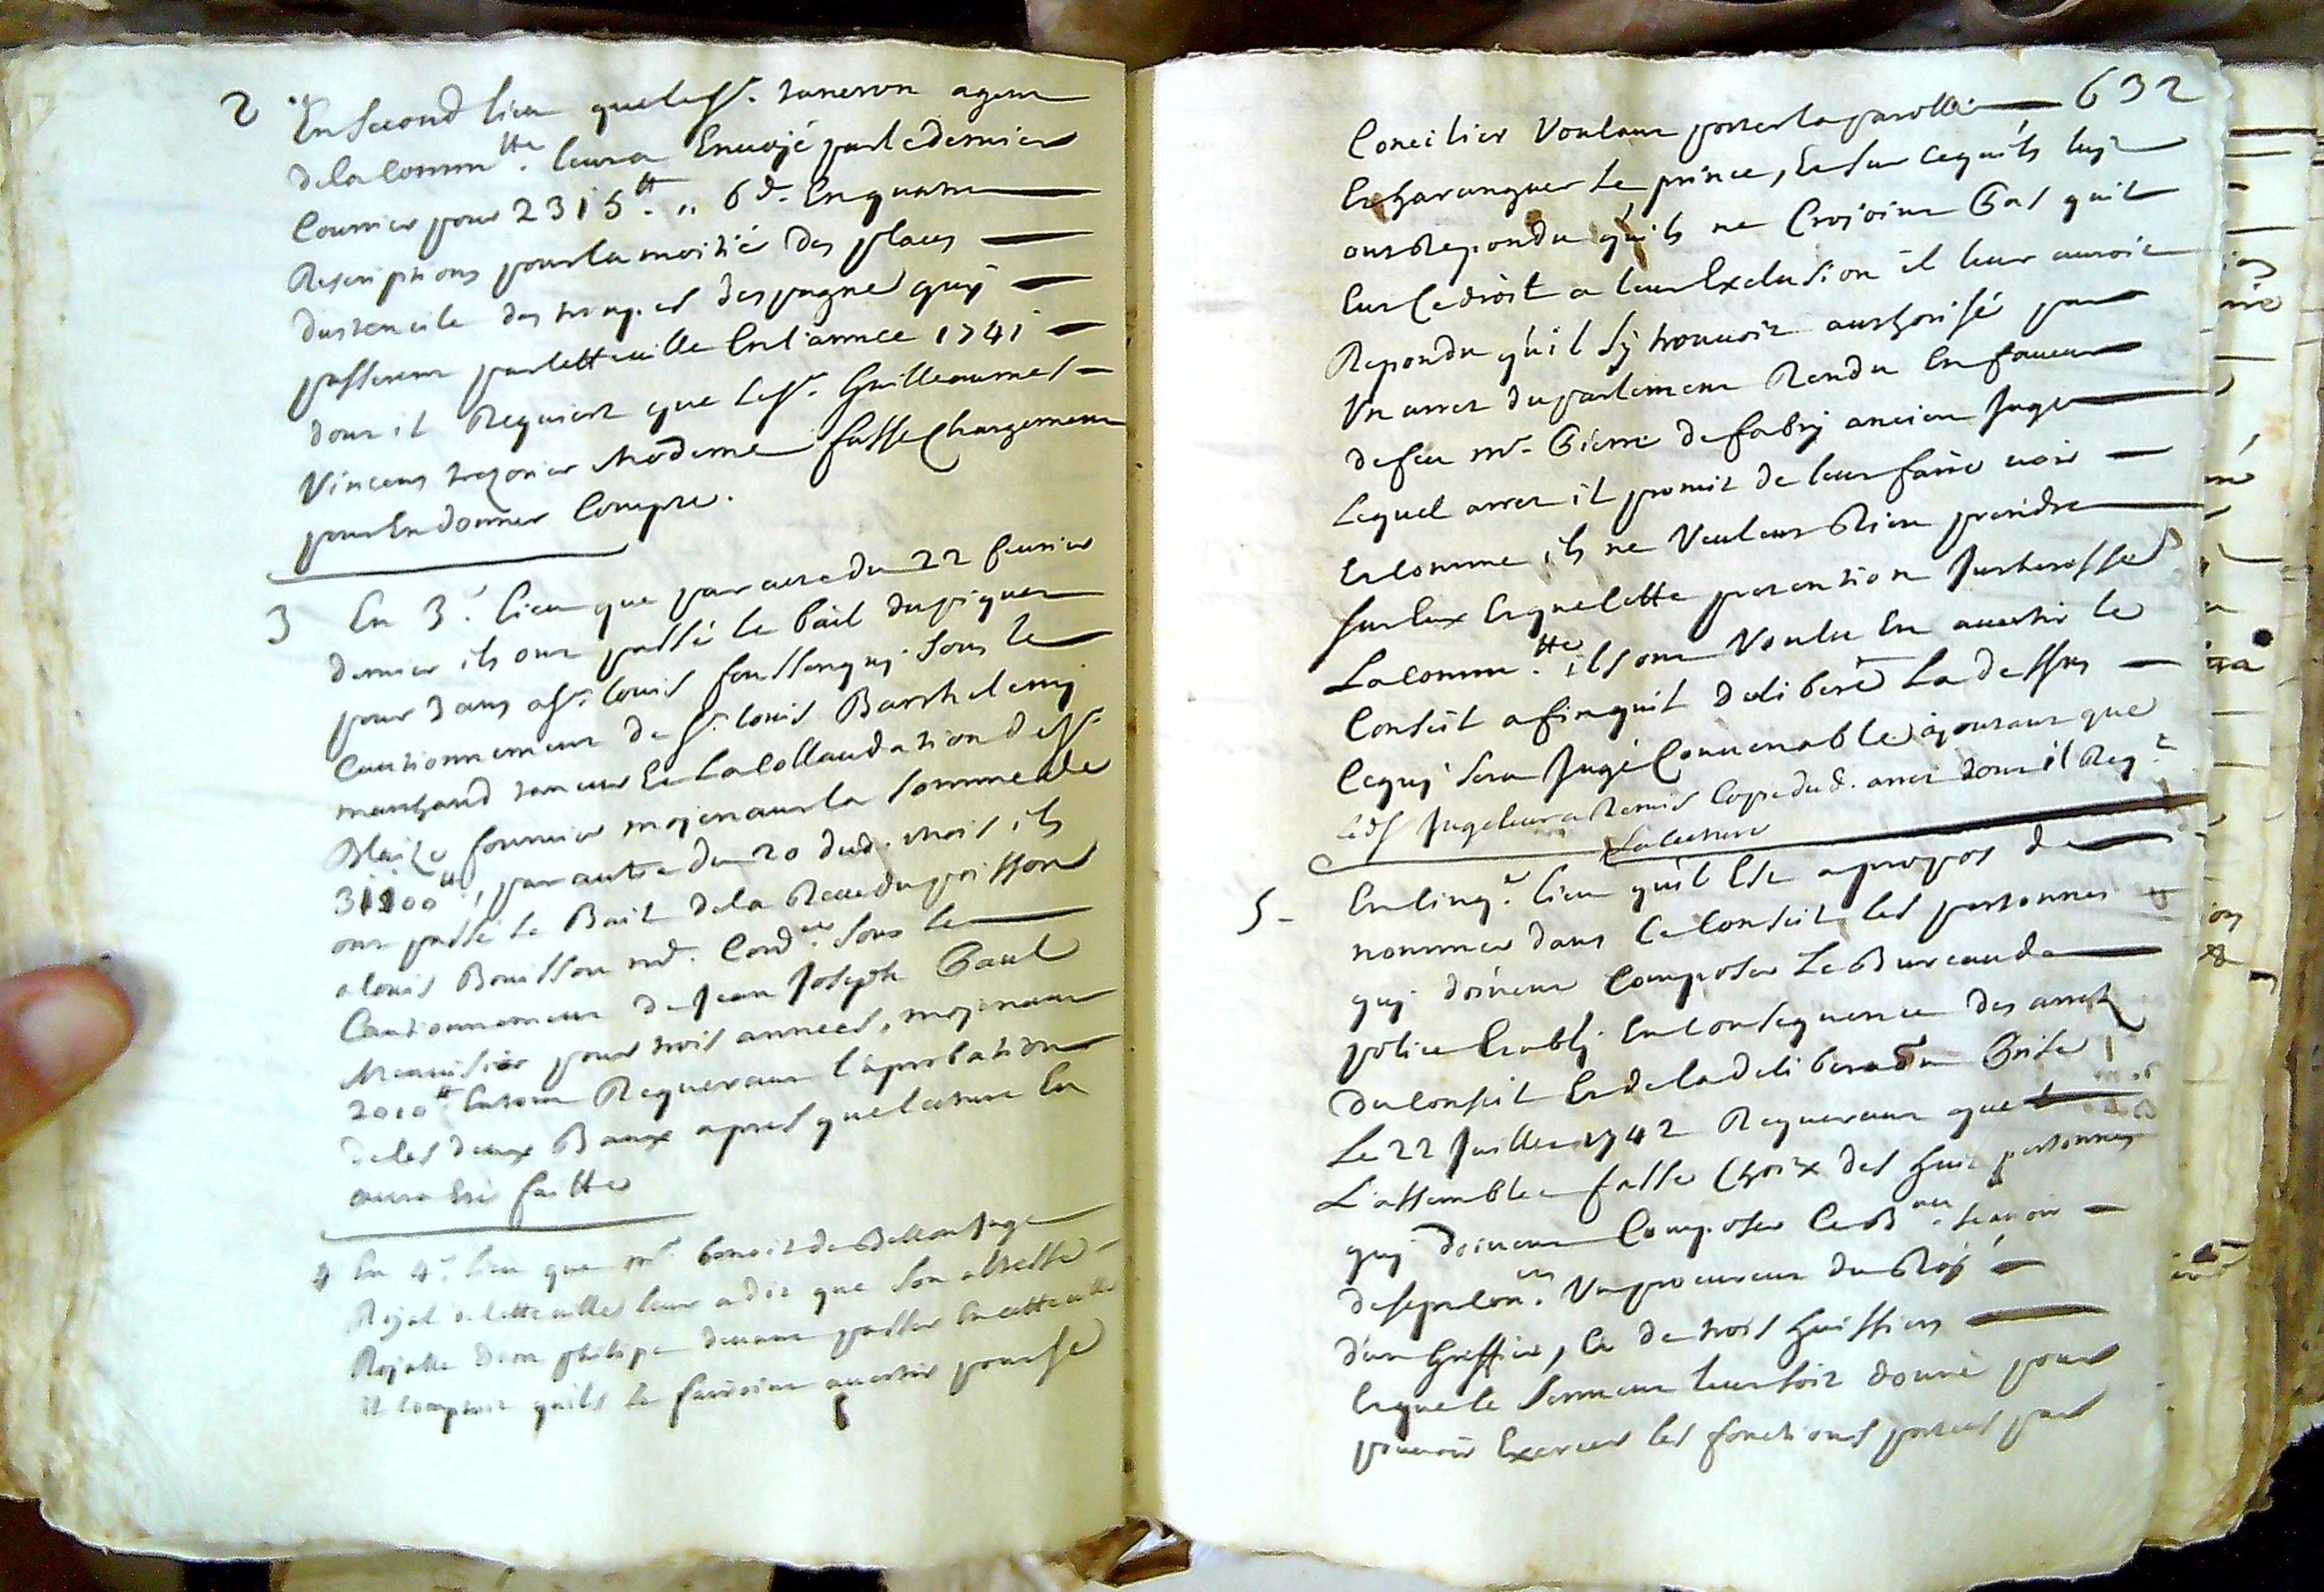 2 En second lieu que le sr. taneron agent
de la commtté. leur a Envoyé par le dernier
Courrier pour 2315tt. ,, 6d. En quatre
Rescriptions pour la moitié des places
dustencile des troupes despagne quy
passerent par cette ville En l'année 1741
dont il Requiert que le sr. Guilleaumes
Vincens trezorier Moderne fasse Chargement
pour En donner Compte.
3 En 3e. lieu que par acte du 22 feurier
dernier ils ont passé le bail du piquet
pour 3 ans a sr. louis foussenquy sous le
Cautionnement de sr. louis Barthelemy
marchand tanneur Et la collaudation de sr.
Blaize fournier moyenant la somme de
31100tt, par autre du 20 dud. mois ils
ont passé le Bail de la Reue du poisson
a louis Bouisson md. Cordier. sous le
Cautionnement de Jean Joseph Paul
Menuisier pour trois années, moyenant
2010tt. En tout Requerant l'aprobation
de ces deux Baux apres que lecture En
aura Eté faitte
4 En 4e. lieu que mr. benoit de Bellon Juge
Royal de cette ville leur a dit que son altesse
Royalle Dom philipe deuant passer En cette ville
il comptoit quils le fairoint auertir pour se
632
Concilier Voulant porter la parolle
Et haranguer le prince, Et sur cequ'ils luy
ont Repondu qu'ils ne Croyoint Pas quil
Eut ce droit a leur Exclusion il leur auroit
Repondu qu'il sy trouuoit authorisé par
Un arret du parlement Rendu En faueur
de feu mr. Pierre de fabry ancien Juge
Lequel arret il promit de leur faire voir
Et comme ils ne Veulent Rien prendre
sur Eux Et que cette pretention Interesse
La commtté. ils ont Voulu En auertir le
Conseil afin quil deliberé La dessus
Cequy sera Jugé Conuenable ajoutant que
led sr Juge leur a Remis Copie dud. arret dont il Reqt.
La lecture
5- En cinqe. lieu qu'il Est a propos de
nommer dans ce Conseil les personnes
quy doiuent Composer Le Bureau de
police Etably En Consequence des arrets
du Conseil Et de la deliberaon Prise
Le 22 Juillet 1742 Requerant que
L'assemblée fasse Choix des huit personnes
quy doiuent Composer Le Beau. sauoir
de sept Coners. Un procureur du Roy
d'un Greffier, Et de trois huissiers
Et que le serment leur soit donné pour
pouuoir Exercer les fonctions portées par